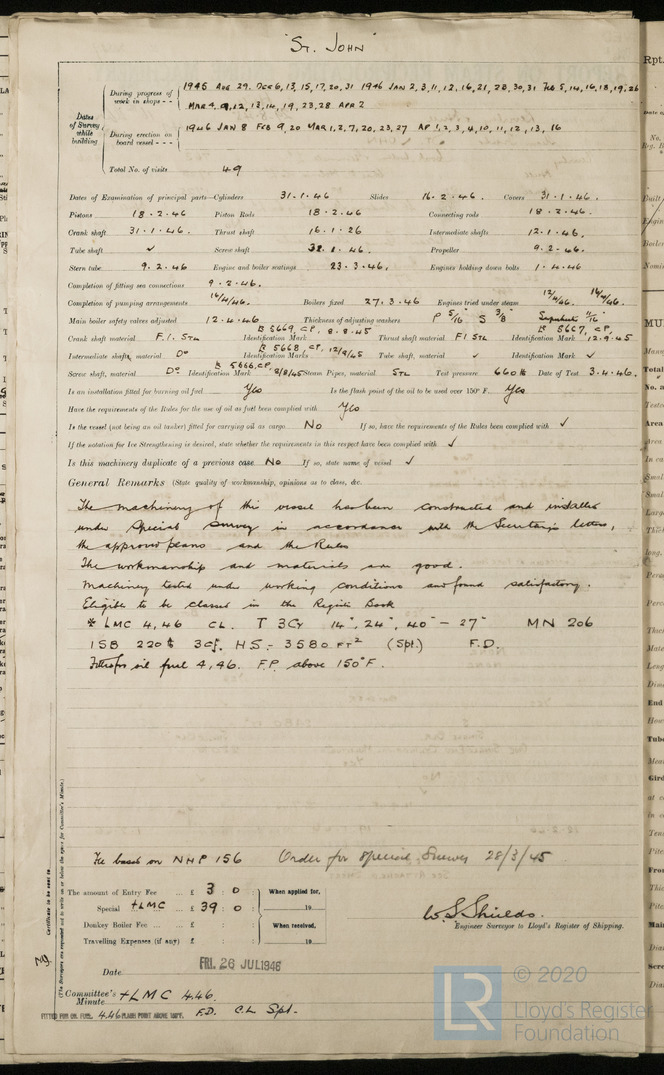 "ST. JOHN"
Dates of Survey while building
During progress of work in shops - - 1945 AUG 29. DEC 6, 13, 15, 17, 20, 31 1946 JAN 2, 3, 11, 12, 16, 21, 28, 30, 31 FEB 5, 14, 16, 18, 19, 26
MAR 4, 9, 12, 13, 14, 19, 23, 28 APR 2
During erection on board vessel - - - 1946 JAN 8 FEB 9, 20 MAR 1, 2, 7, 20, 23, 27 AP 1, 2, 3, 4, 10, 11, 12, 13, 16
Total No. of visits 49
Dates of Examination of principal parts—Cylinders 31.1.46 Slides 16.2.46. Covers 31.1.46.
Pistons 18.2.46 Piston Rods 18.2.46 Connecting rods 18.2.46.
Crank shaft 31.1.46. Thrust shaft 16.1.26 Intermediate shafts 12.1.46.
Tube shaft ✓ Screw shaft 31.1.46. Propeller 9.2.46.
Stern tube 9.2.46 Engine and boiler seatings 23.3.46. Engines holding down bolts 1.4.46
Completion of fitting sea connections 9.2.46.
Completion of pumping arrangements 16/4/46. Boilers fixed 27.3.46 Engines tried under steam 12/4/46. 16/4/46.
Main boiler safety valves adjusted 12.4.46 Thickness of adjusting washers P 5/16" S 3/8" Superheat 11/16"
Crank shaft material F.I. STL Identification Mark B 5669, CP, 8.8.45 Thrust shaft material F I STL Identification Mark B 5667, CP, 12.9.45
Intermediate shafts, material Do Identification Marks B 5668, CP, 12/9/45 Tube shaft, material ✓ Identification Mark ✓
Screw shaft, material Do Identification Mark B 5666, CP, 8/8/45 Steam Pipes, material STL Test pressure 660 lb Date of Test 3.4.46.
Is an installation fitted for burning oil fuel Yes Is the flash point of the oil to be used over 150°F. Yes
Have the requirements of the Rules for the use of oil as fuel been complied with Yes
Is the vessel (not being an oil tanker) fitted for carrying oil as cargo No If so, have the requirements of the Rules been complied with ✓
If the notation for Ice Strengthening is desired, state whether the requirements in this respect have been complied with ✓
Is this machinery duplicate of a previous case No If so, state name of vessel ✓
General Remarks (State quality of workmanship, opinions as to class, &c.
The machinery of this vessel has been constructed and installed
under special survey in accordance with the Secretary's letters,
the approved plans and the Rules
The workmanship and materials are good.
Machinery tested under working conditions and found satisfactory.
Eligible to be classed in the Register Book
* LMC 4,46 CL. T 3Cy 14", 24", 40" – 27" MN 206
1SB 220 lb 3cf. HS - 3580 FT² (Spt.) F.D.
Fitted for oil fuel 4,46. F.P. above 150°F.
Fee based on NHP 156 Order for Special Survey 28/3/45
The amount of Entry Fee ... £ 3 : 0 : When applied for,
Special +LMC ... £ 39 : 0 : 19
Donkey Boiler Fee ... £ : : When received,
Travelling Expenses (if any) £ : : 19
W. S. Shields.
Engineer Surveyor to Lloyd's Register of Shipping.
Date FRI. 26 JUL 1946
Committee's Minute +LMC 4.46.
FITTED FOR OIL FUEL 4.46 FLASH POINT ABOVE 150°F. F.D. C.L Spt.
Certificate to be sent to
(The Surveyors are requested not to write on or below the space for Committee's Minute.)
© 2020
Lloyd's Register
Foundation
LR
Rpt.